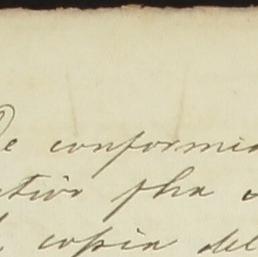 De conformid
ativo fha
copia del